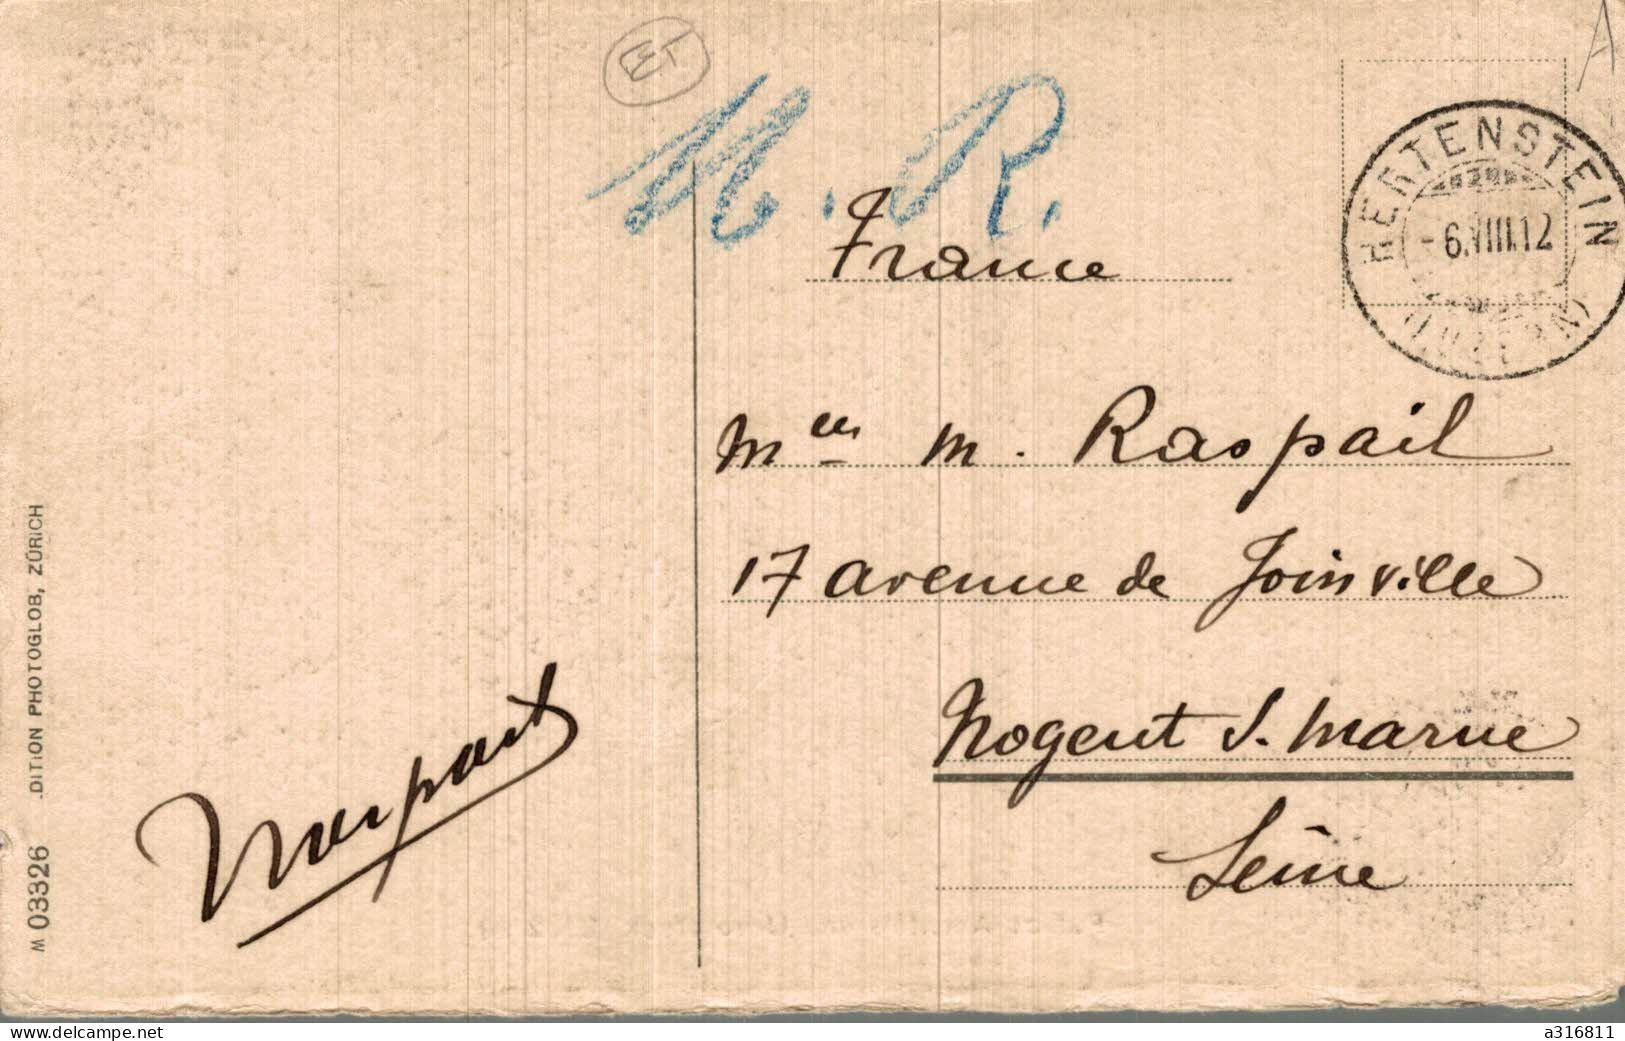 ET
A
M. R.
France
HERTENSTEIN
-6.VIII.12
(LUZERN)
Mlle M. Raspail
17 avenue de Joinville
Nogent s. Marne
Seine
.DITION PHOTOGLOB, ZÜRICH
M 03326
www.delcampe.net
a316811